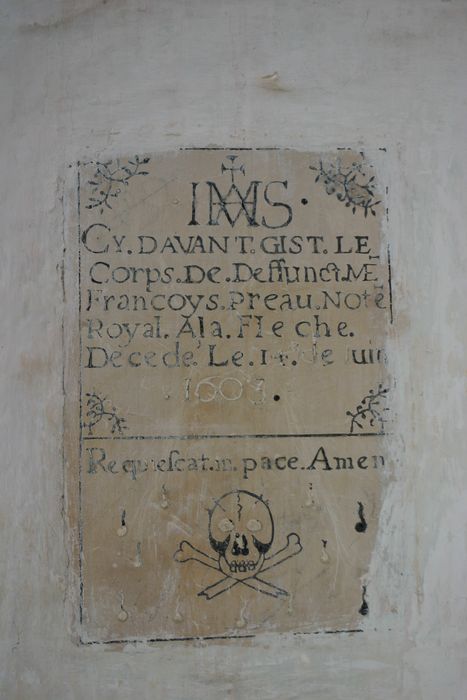 IHS.
CY.DAVANT.GIST.LE
Corps.De.Deffunct.ME
Francoys.Preau.Note
Royal.Ala.Fleche.
Décédé.Le.14.de Juin
.1603.
Requiescat.in.pace.Amen